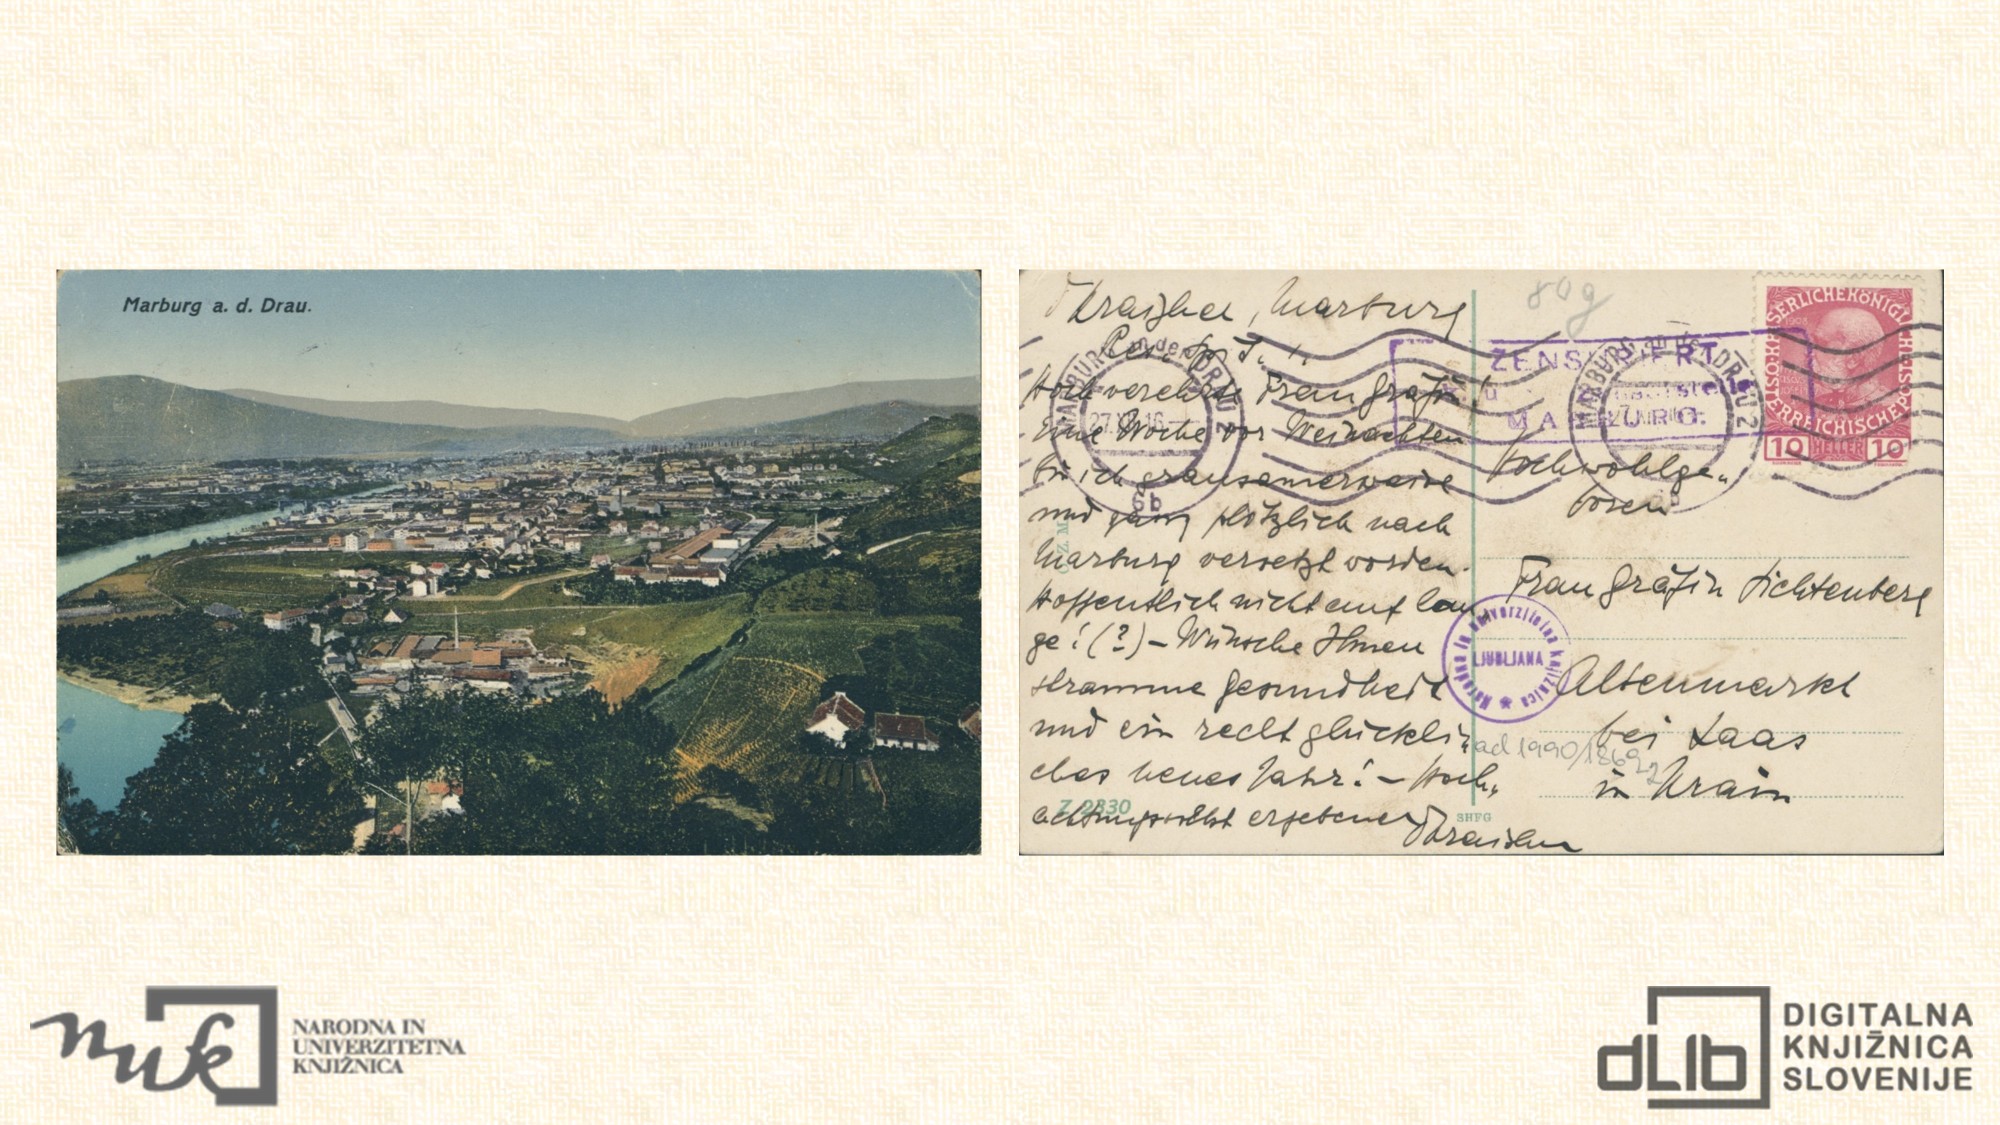 Marburg a. d. Drau.
Marburg
Res. Sp. I.
Hochverehrte Frau Gräfin!
Eine Woche vor Weinachten
bin ich grausamerweise
und ganz plötzlich nach
Marburg versetzt worden.
Hoffentlich nicht auf lan
ge! (?) – Wünsche Ihnen
stramme Gesundheit
und ein recht glückli„
ches neues Jahr! – Hoch„
achtungsvollst ergebener
80g
ZENSURIERT
MARBURG.
MARBURG an der DRAU 2
27.XII.16
6b
MARBURG an der DRAU 2
KAISERLICHE KÖNIGLICHE
ÖSTERREICHISCHE POST
10 HELLER 10
Hochwohlge„
boren
Frau Gräfin Lichtenberg
Altenmarkt
bei Laas
in Krain
Narodna in univerzitetna knjižnica
LJUBLJANA
ad 1990/18692
Z 9330
SHFG
nuk
NARODNA IN
UNIVERZITETNA
KNJIŽNICA
dLib
DIGITALNA
KNJIŽNICA
SLOVENIJE